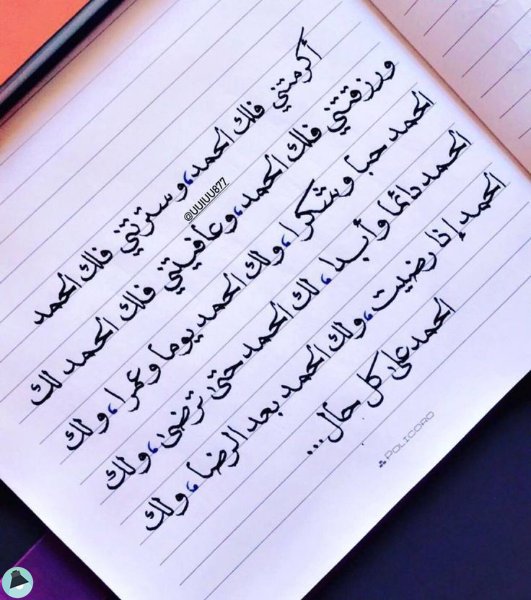 أكرمتني فلك الحمد، وسترتني فلك الحمد
ورزقتني فلك الحمد، وعافيتني فلك الحمد لك
الحمد حبا وشكرا، ولك الحمد يوما وعمرا، ولك
الحمد دائما وأبدا، لك الحمد حتى ترضى، ولك
الحمد إذا رضيت، ولك الحمد بعد الرضا، ولك
الحمد على كل حال...
@UUIUU877
POLICORO